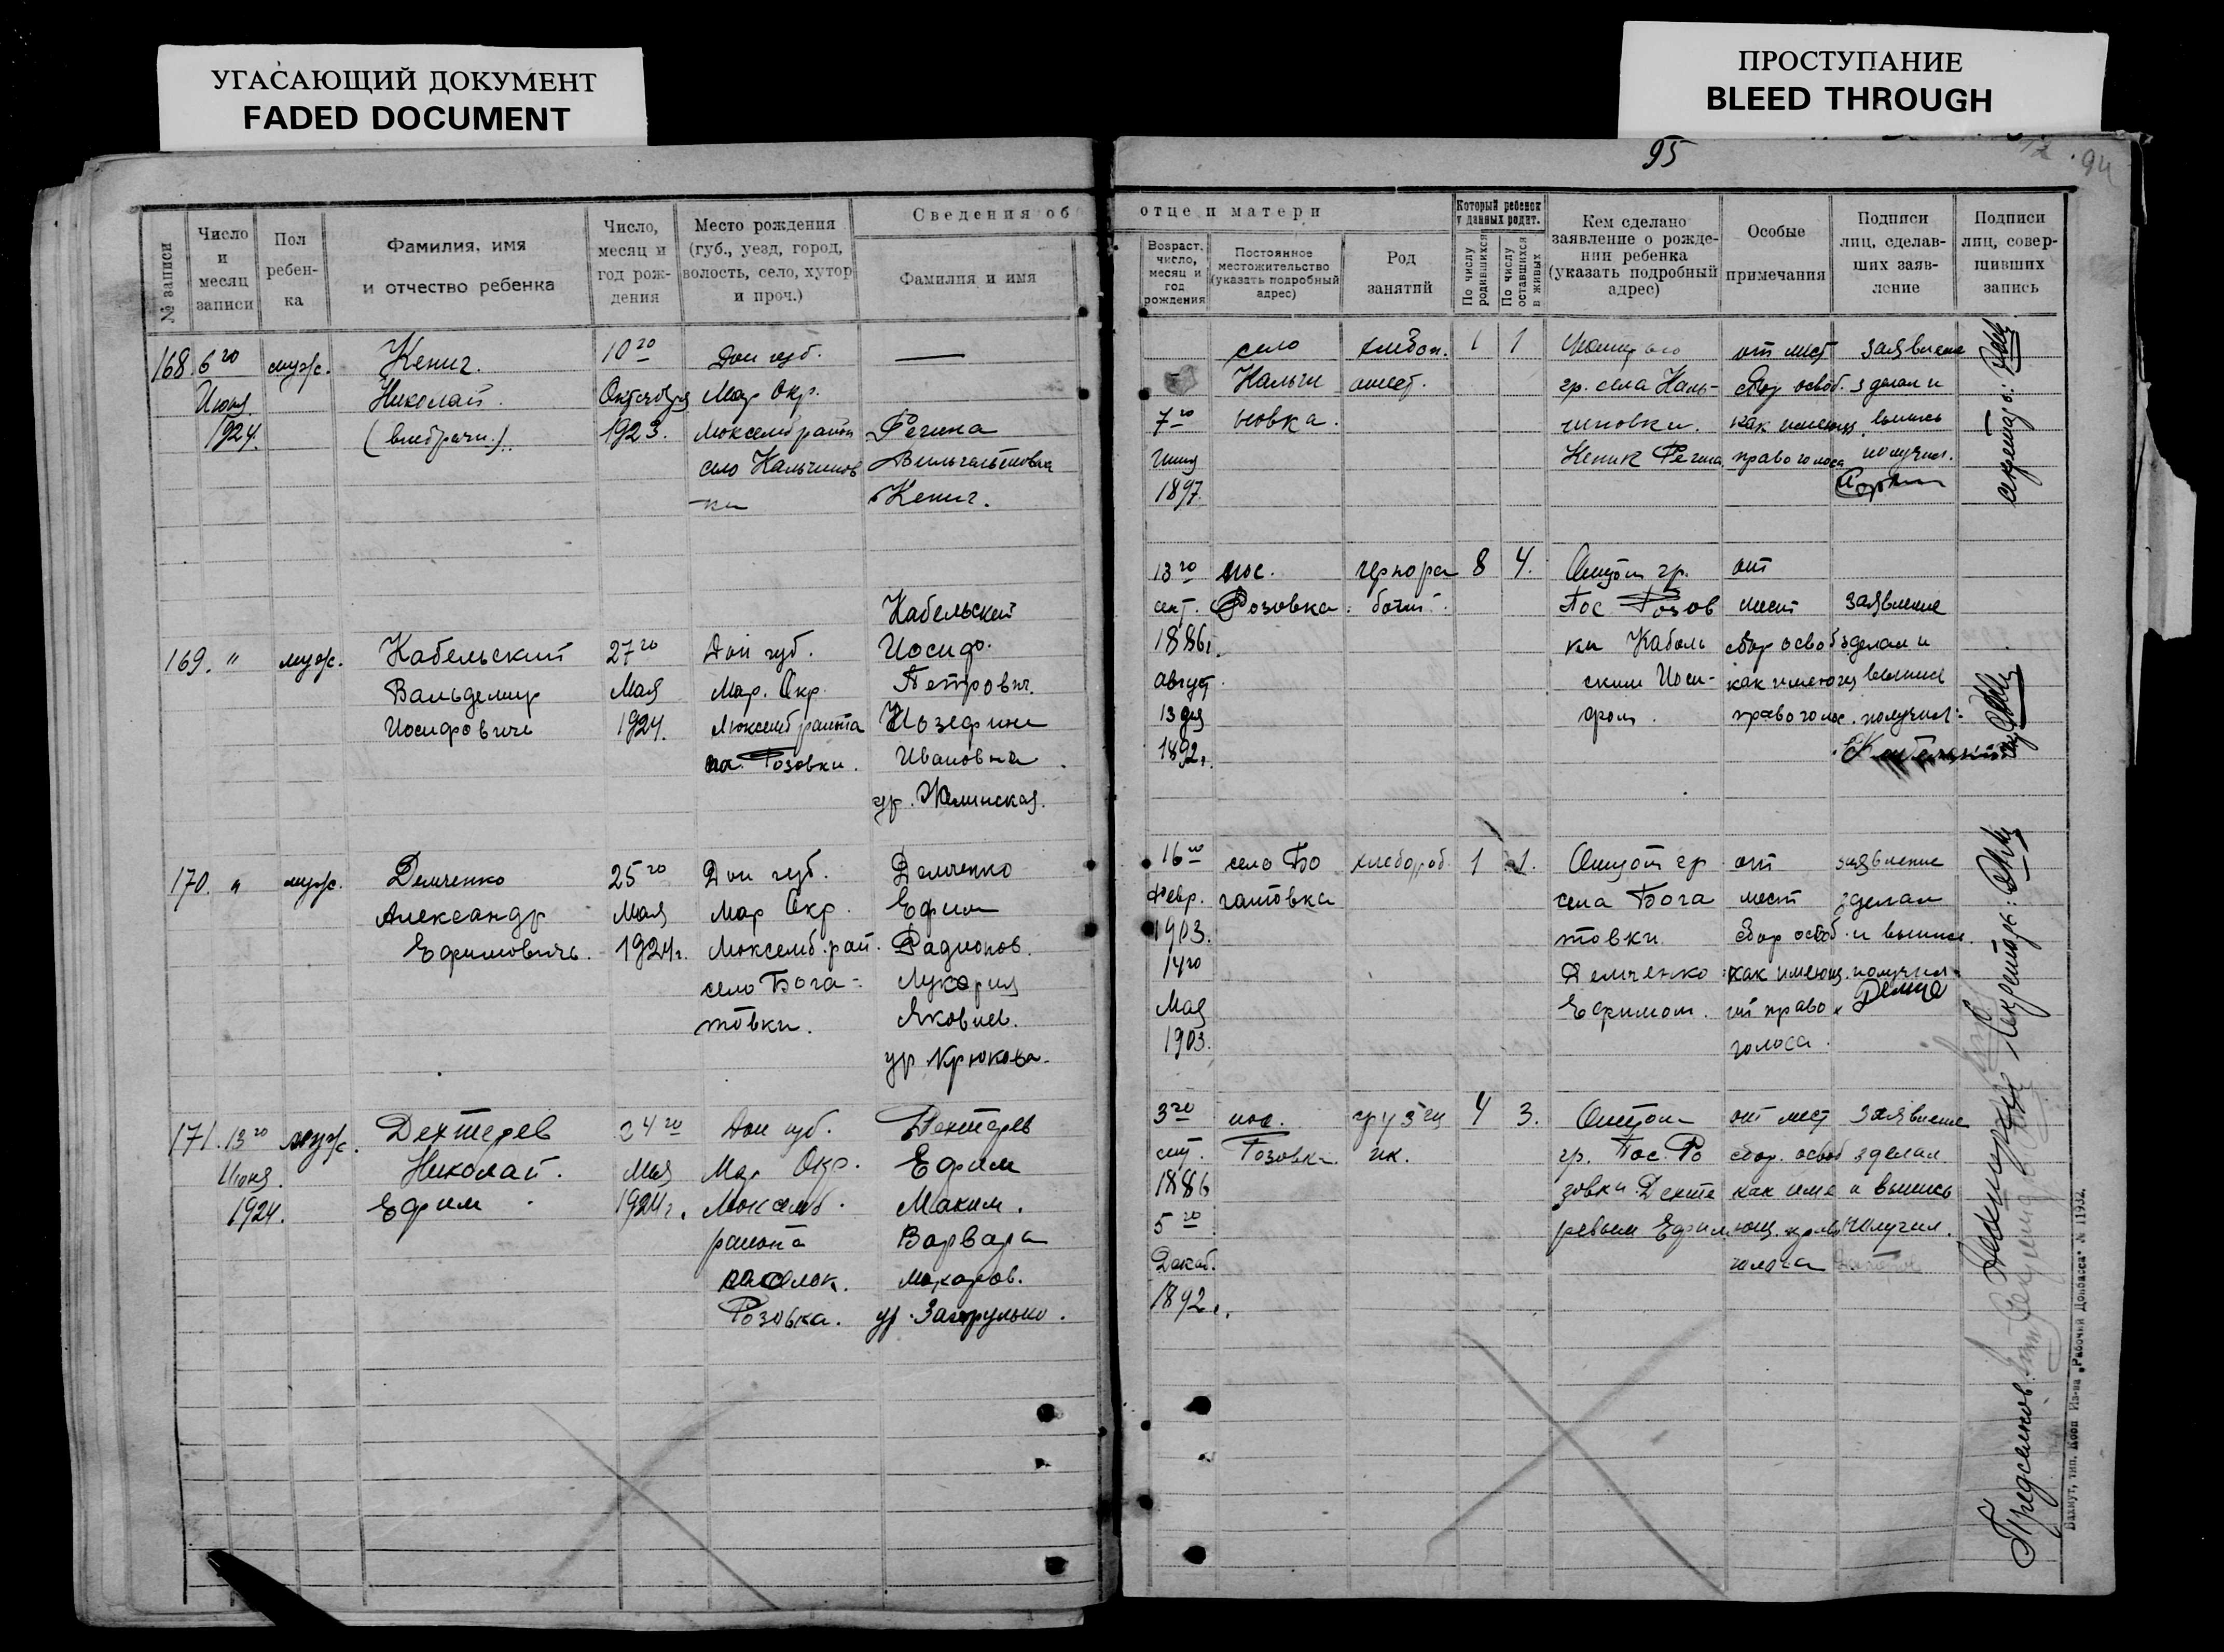 УГАСАЮЩИЙ ДОКУМЕНТ
FADED DOCUMENT
ПРОСТУПАНИЕ
BLEED THROUGH
95
94
№ записи
Число и месяц записи
Пол ребен-ка
Фамилия, имя и отчество ребенка
Число, месяц и год рож-дения
Место рождения (губ., уезд, город, волость, село, хутор и проч.)
Сведения об отце и матери
Фамилия и имя
Возраст, число, месяц и год рождения
Постоянное местожительство (указать подробный адрес)
Род занятий
Который ребенок у данных родит.
По числу родившихся
По числу оставшихся в живых
Кем сделано заявление о рожде-нии ребенка (указать подробный адрес)
Особые примечания
Подписи лиц, сделав-ших заяв-ление
Подписи лиц, совер-шивших запись
168. 6го Июня 1924.
муж.
Кениг.
Николай.
(внебрачн.)
10го
Октября
1923.
Дон губ.
Мар Окр.
Люксембрайон
село Кальчинов
ки
—
Регина
Вильгельмовна
Кениг.
7го
1897
село
Кальчи
новка.
хлебоп.
1
1
гр. села Каль-
чиновки.
Кеник Регина
от мест
сбор освоб.
как имеющ.
право голоса
заявление
зделал и
выпись
получил.
секретарь:
169. "
муж.
Кабельский
Вальдемир
Иосифовичь
27го
Мая
1924.
Дон губ.
Мар. Окр.
Люксембраиона
Розовки.
Кабельский
Иосиф.
Петрович.
Иозефина
Ивановна
ур.
13го
сент.
1886г.
август.
13 дня
1892г.
пос.
Розовка.
чернора
бочий.
8
4.
Отцом гр.
Пос Розов
ки Кабель
ским Иоси-
фом.
от
мест
сбор освоб
как имеющ
право голос.
заявление
зделал и
выпись
получил:
170. "
муж.
Демченко
Александр
Ефимовичь.
25го
Мая
1924г.
Дон губ.
Мар Окр.
Люксемб. рай.
село Бога-
товки.
Демченко
Ефим
Радионов.
Лукерия
Яковлев.
ур Крюкова.
16го
Февр.
1903.
14го
Мая
1903.
село Бо
гатовка
хлебороб.
1
1.
Отцом гр
села Бога
товки
Демченко
Ефимом.
от
мест
сбор освоб.
как имеющ.
ий право
голоса.
заявление
зделал
и выпись.
получил.
Демче
Секретарь:
171. 13го
Июня.
1924.
муж.
Дехтерев
Николай.
Ефим
24го
Мая
1924г.
Дон губ.
Мар Окр.
Люксемб.
раиона
поселок.
Розовка.
Дехтерев
Ефим
Маким.
Варвара
Макаров.
ур. Загрулько.
3го
1886
5го
Декаб.
1892г.
пос.
Розовка.
грузчи
ик.
4
3.
Отцом
гр. Пос. Ро
зовки Дехте
ревым Ефим.
от мест
сбор. освоб
как име
ющ. право
голоса
заявление
зделал.
и выпись
получил.
Бахмут, тип. Кооп Из-ва „Рабочий Донбасса" № 11932.